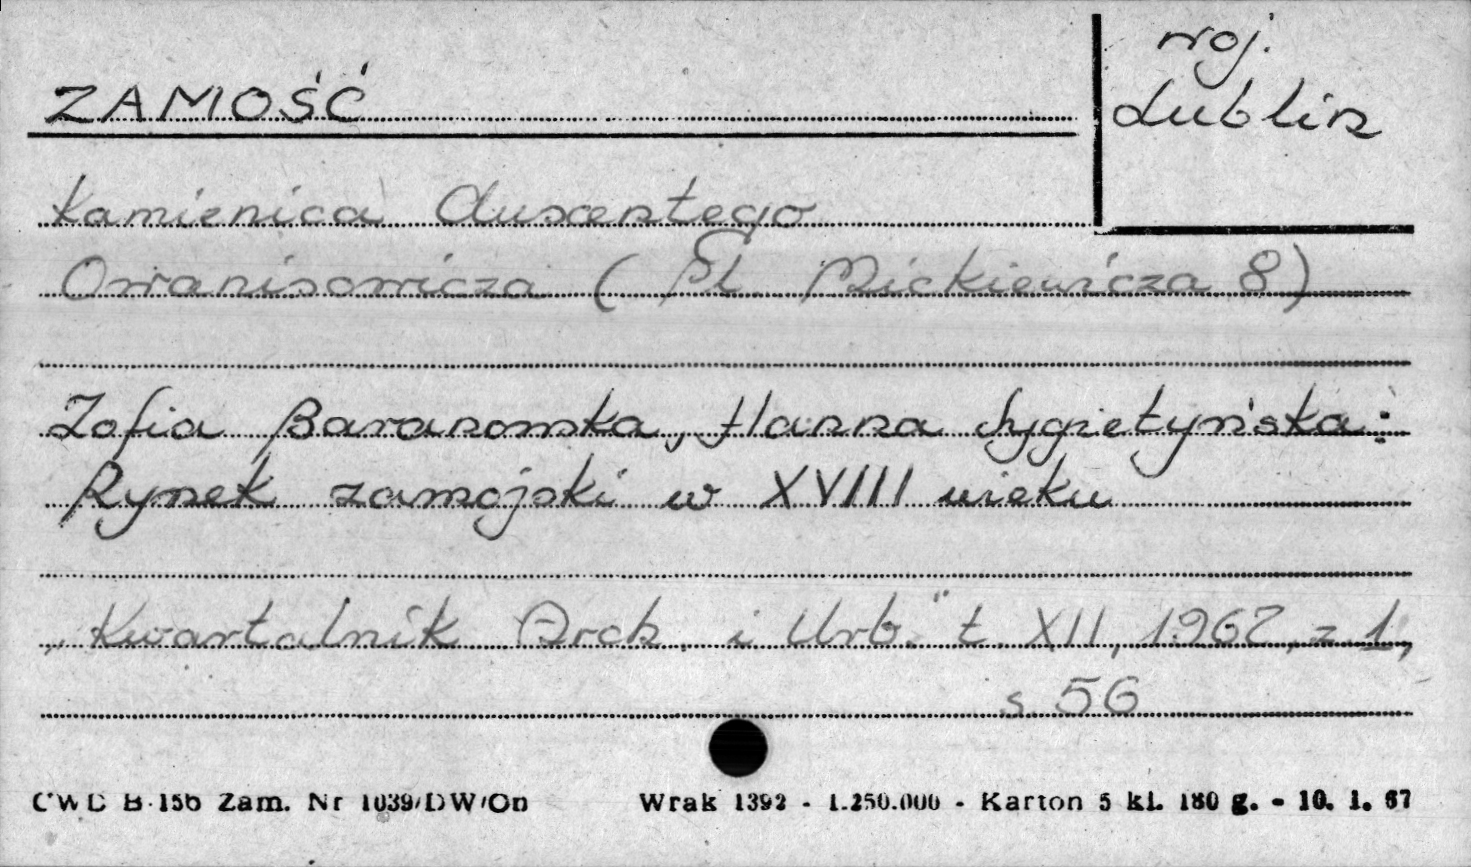 ZAMOŚĆ
woj.
Lublin
Kamienica Auxentego
Owanisowicza (Pl. Mickiewicza 8)
Zofia Baranowska, Hanna Sygietyńska:
Rynek zamojski w XVIII wieku
„Kwartalnik Arch. i Urb." t. XII, 1967, z 1,
s. 56
CWD B-156 Zam. Nr 1039/DW/On Wrak 1392 - 1.250.000 - Karton 5 kl. 180 g. - 10. 1. 67